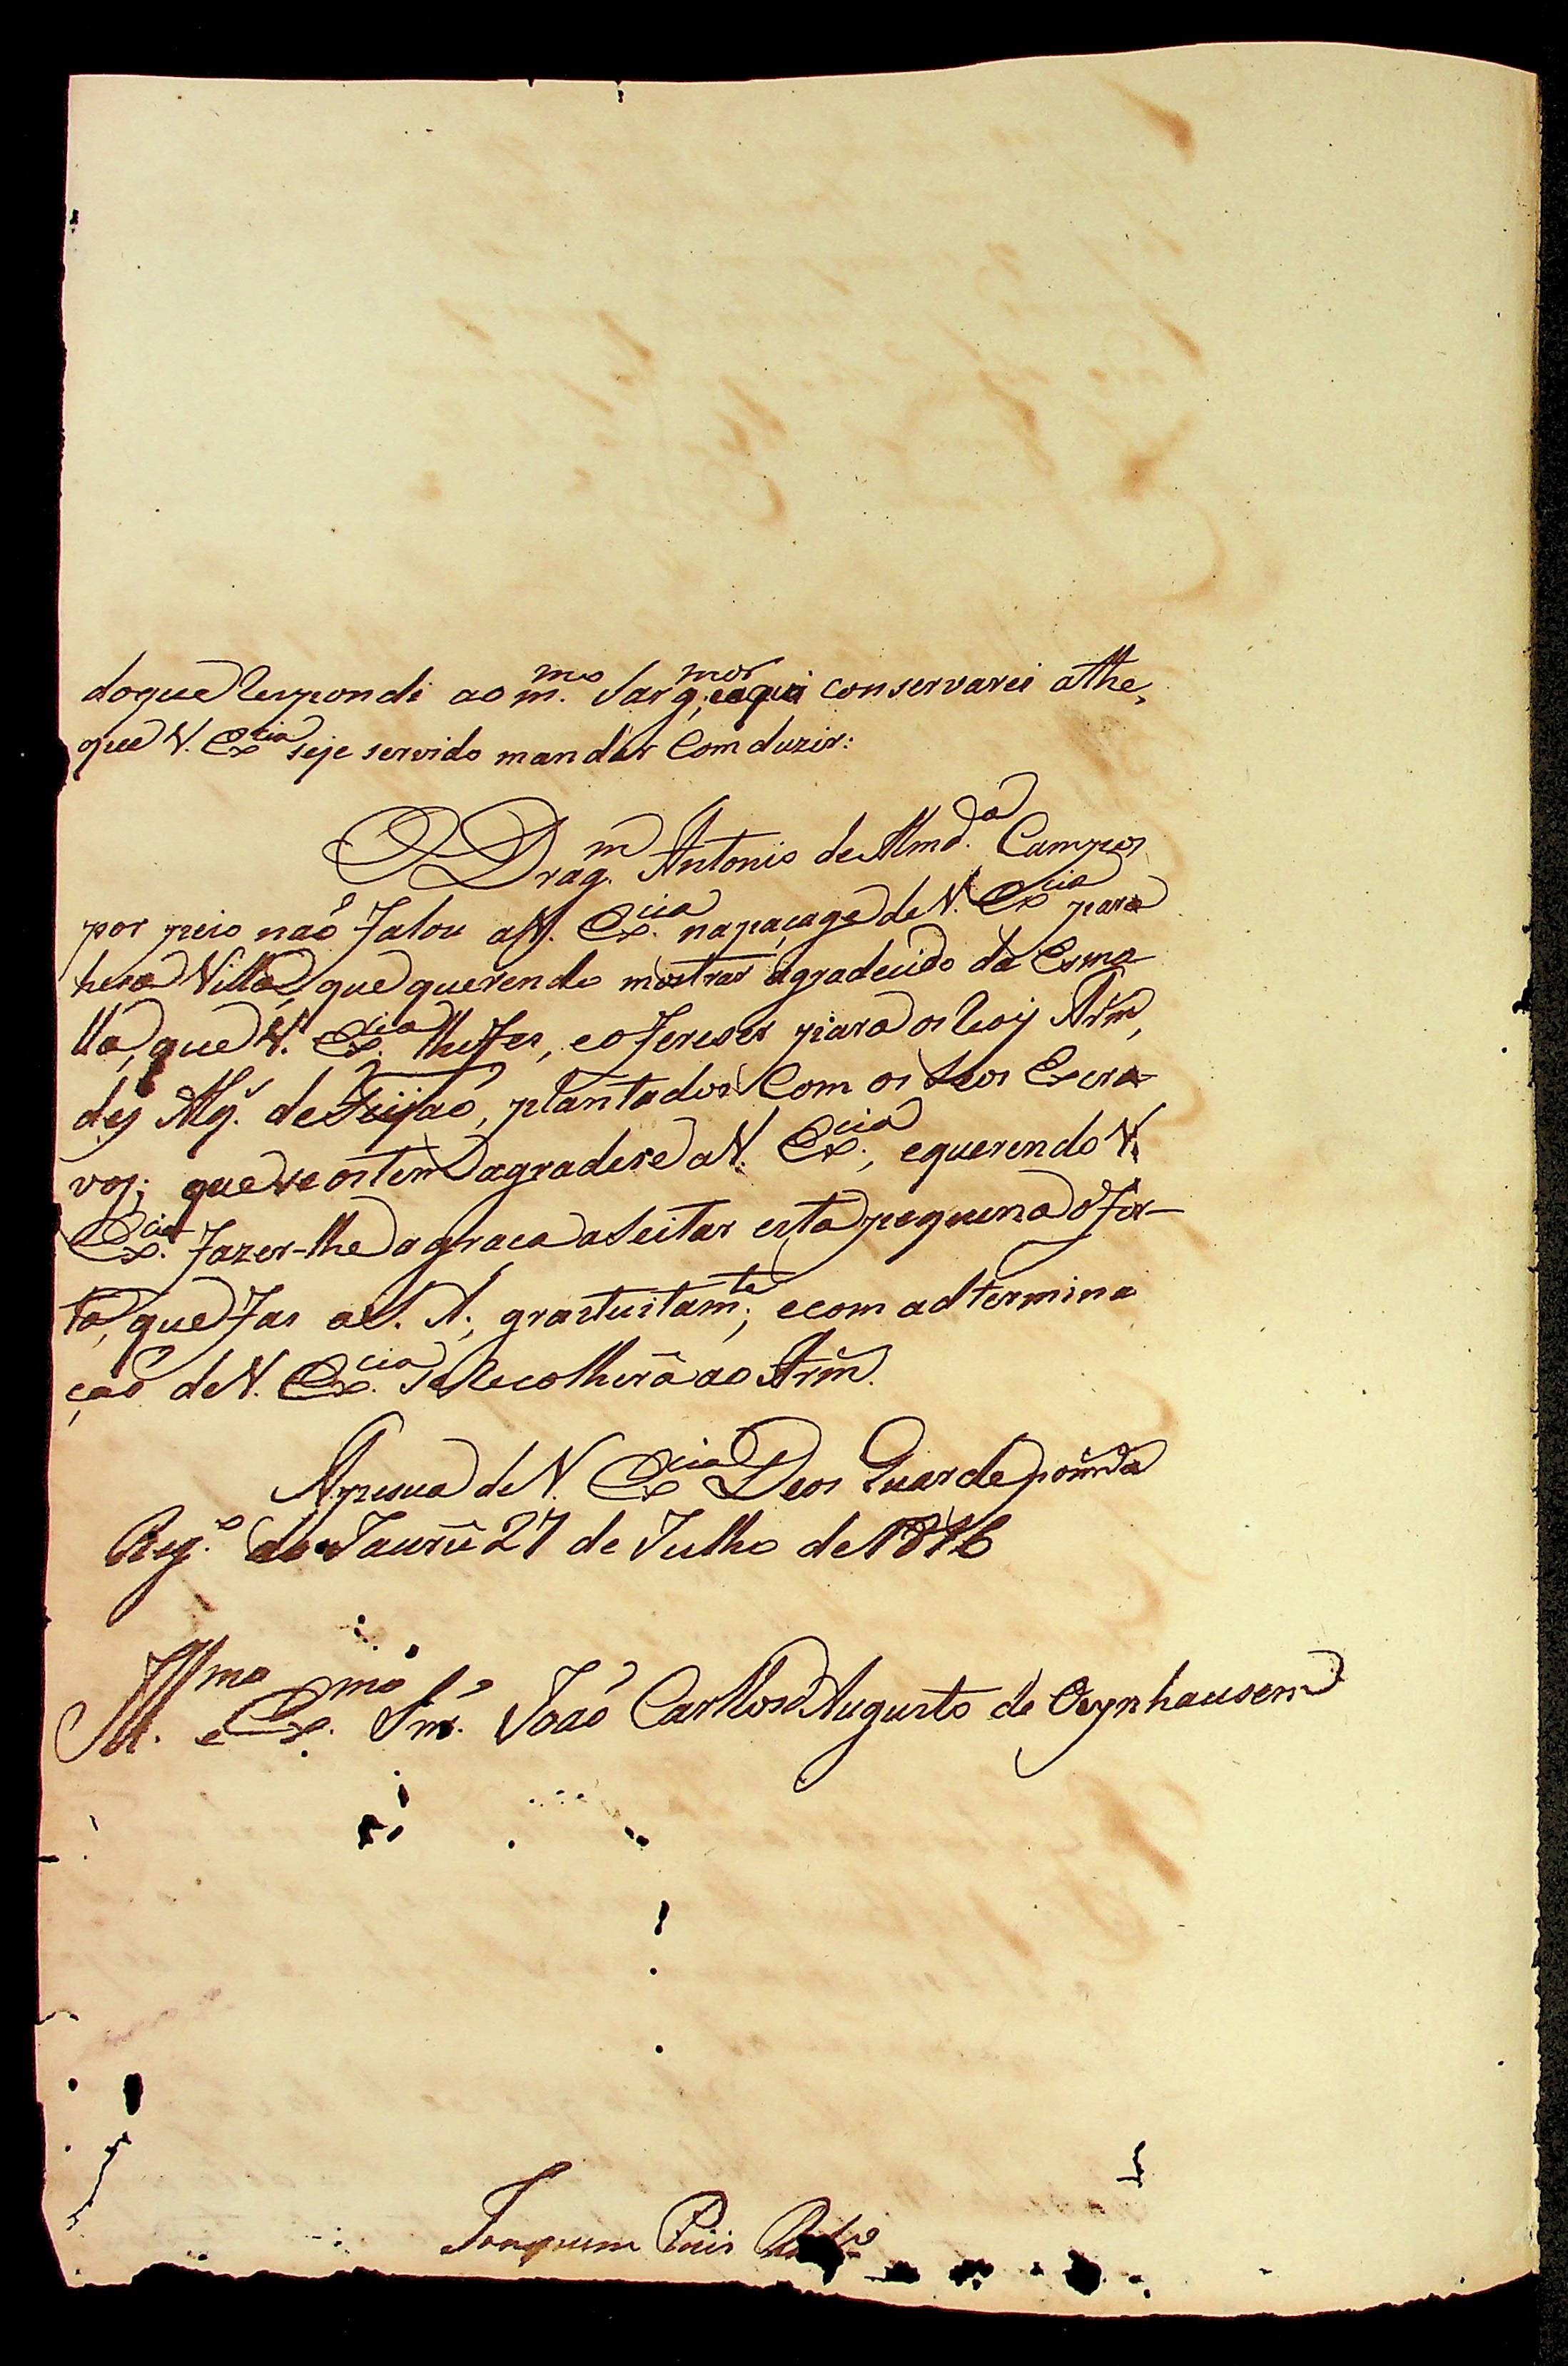 doque Respondi ao m.mo Sarg.mor, eaqui conservarei athe,
que V. Ex.cia seje servido mandar Comduzir:
O Drag.m Antonio de Almd.a Campos
por peio naõ falou aV. Ex.cia napaçage de V. Ex.cia para
hesa Villa, que querendo mostrar agradecido da Esmo-
lla, que V. Ex.cia lhe fes, eofereser para os Reiȷ̃ Arm̃,
des Alq.s de Feijaõ, plantados Com os Seos Escra-
vos; que se os tem agradese aV. Ex.cia, equerendo V.
Ex.cia fazer-lhe agraca aSeitar esta pequena ofer-
ta, que fas aS. A., gratuitam.te; ecom adtermina
çaõ de V. Ex.cia se Recolherâ ao Arm̃.
Apesua de V. Ex.cia Deos Guarde por m̃.
Reg.o do Jaurû 27 de Julho de 1816
Ill.mo e Ex.mo Snr.̃ Joaõ Carllos Augusto de Oeynhausem
Joaquim